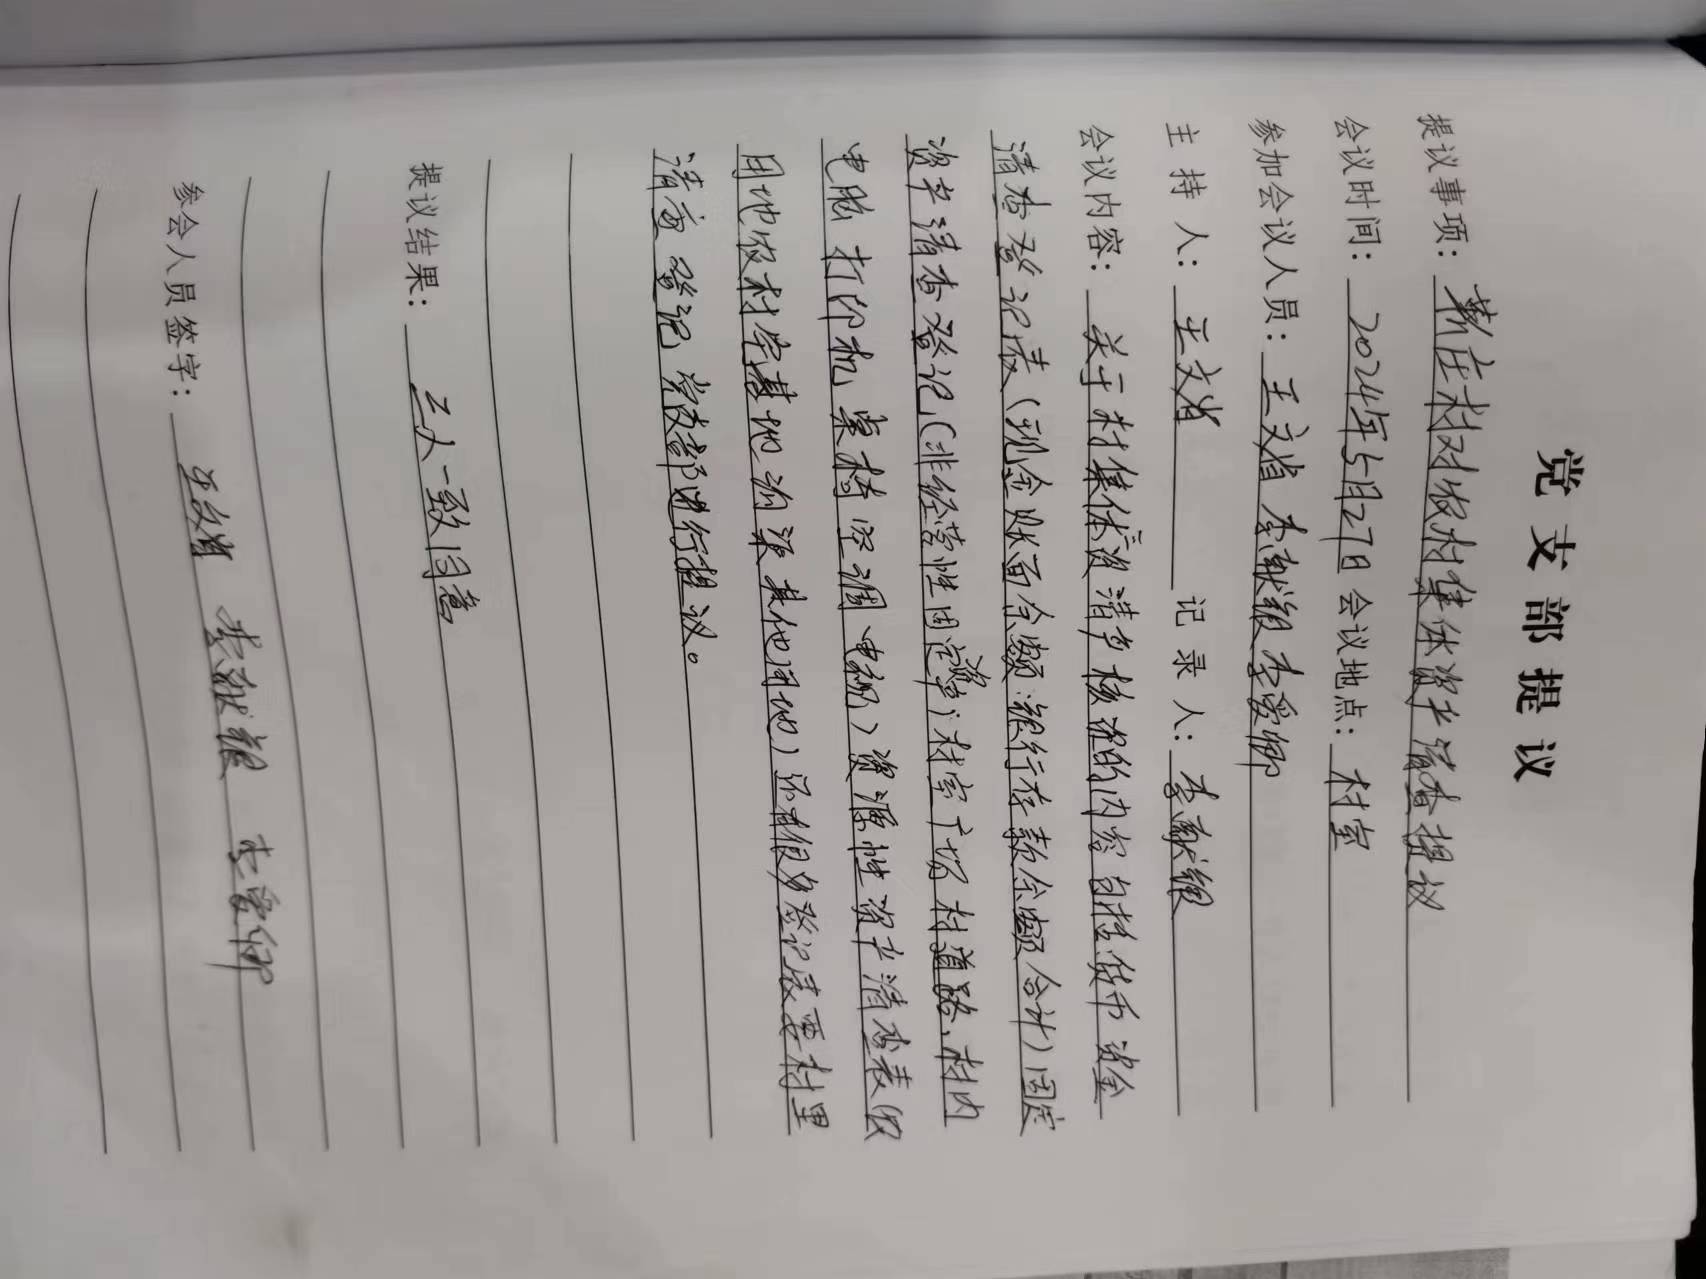 党支部提议
提议事项：靳庄村对农村集体资产清查提议
会议时间：2024年5月27日 会议地点：村室
参加会议人员：王文省 李献缎 李爱卿
主持人：王文省 记录人：李献缎
会议内容：关于村集体资清产核资的内容包括货币资金
清查登记表（现金账面余额：银行存款余额合计）固定
资产清查登记（非经营性固定资产：村室广场村道路、村内
电脑 打印机 桌椅 空调 电视）资源性资产清查表（农
用地农村宅基地沟渠其他用地）还有很多登记表要村里
清查登记 党支部进行提议。
提议结果：三人一致同意
参会人员签字：王文省 李献缎 李爱卿